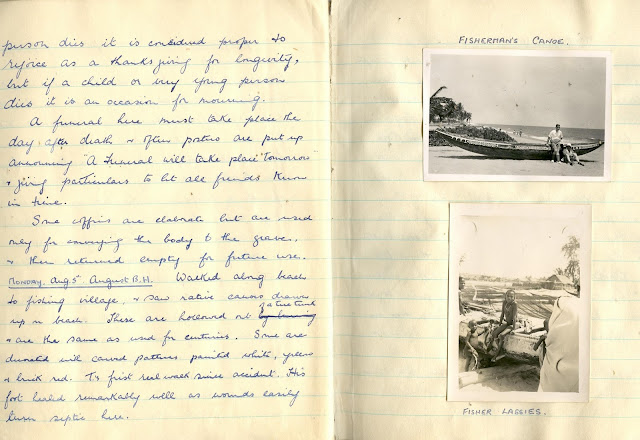 person dies it is considered proper to
rejoice as a thanksgiving for longevity,
but if a child or very young person
dies it is an occasion for mourning.
A funeral here must take place the
day after death & often posters are put up
announcing "A Funeral will take place Tomorrow"
& giving particulars to let all friends know
in time.
Some coffins are elaborate but are used
only for conveying the body to the graves,
& then returned empty for future use.
MONDAY. Aug 5 August B.H. Walked along beach
to fishing village, & saw native canoes drawn
up on beach. These are hollowed out by burning of a tree trunk
& are the same as used for centuries. Some are
decorated with carved patterns painted white, yellow
& brick red. T's first real walk since accident. His
foot heald remarkably well as wounds easily
turn septic here.
FISHERMAN'S CANOE.
FISHER LASSIES.